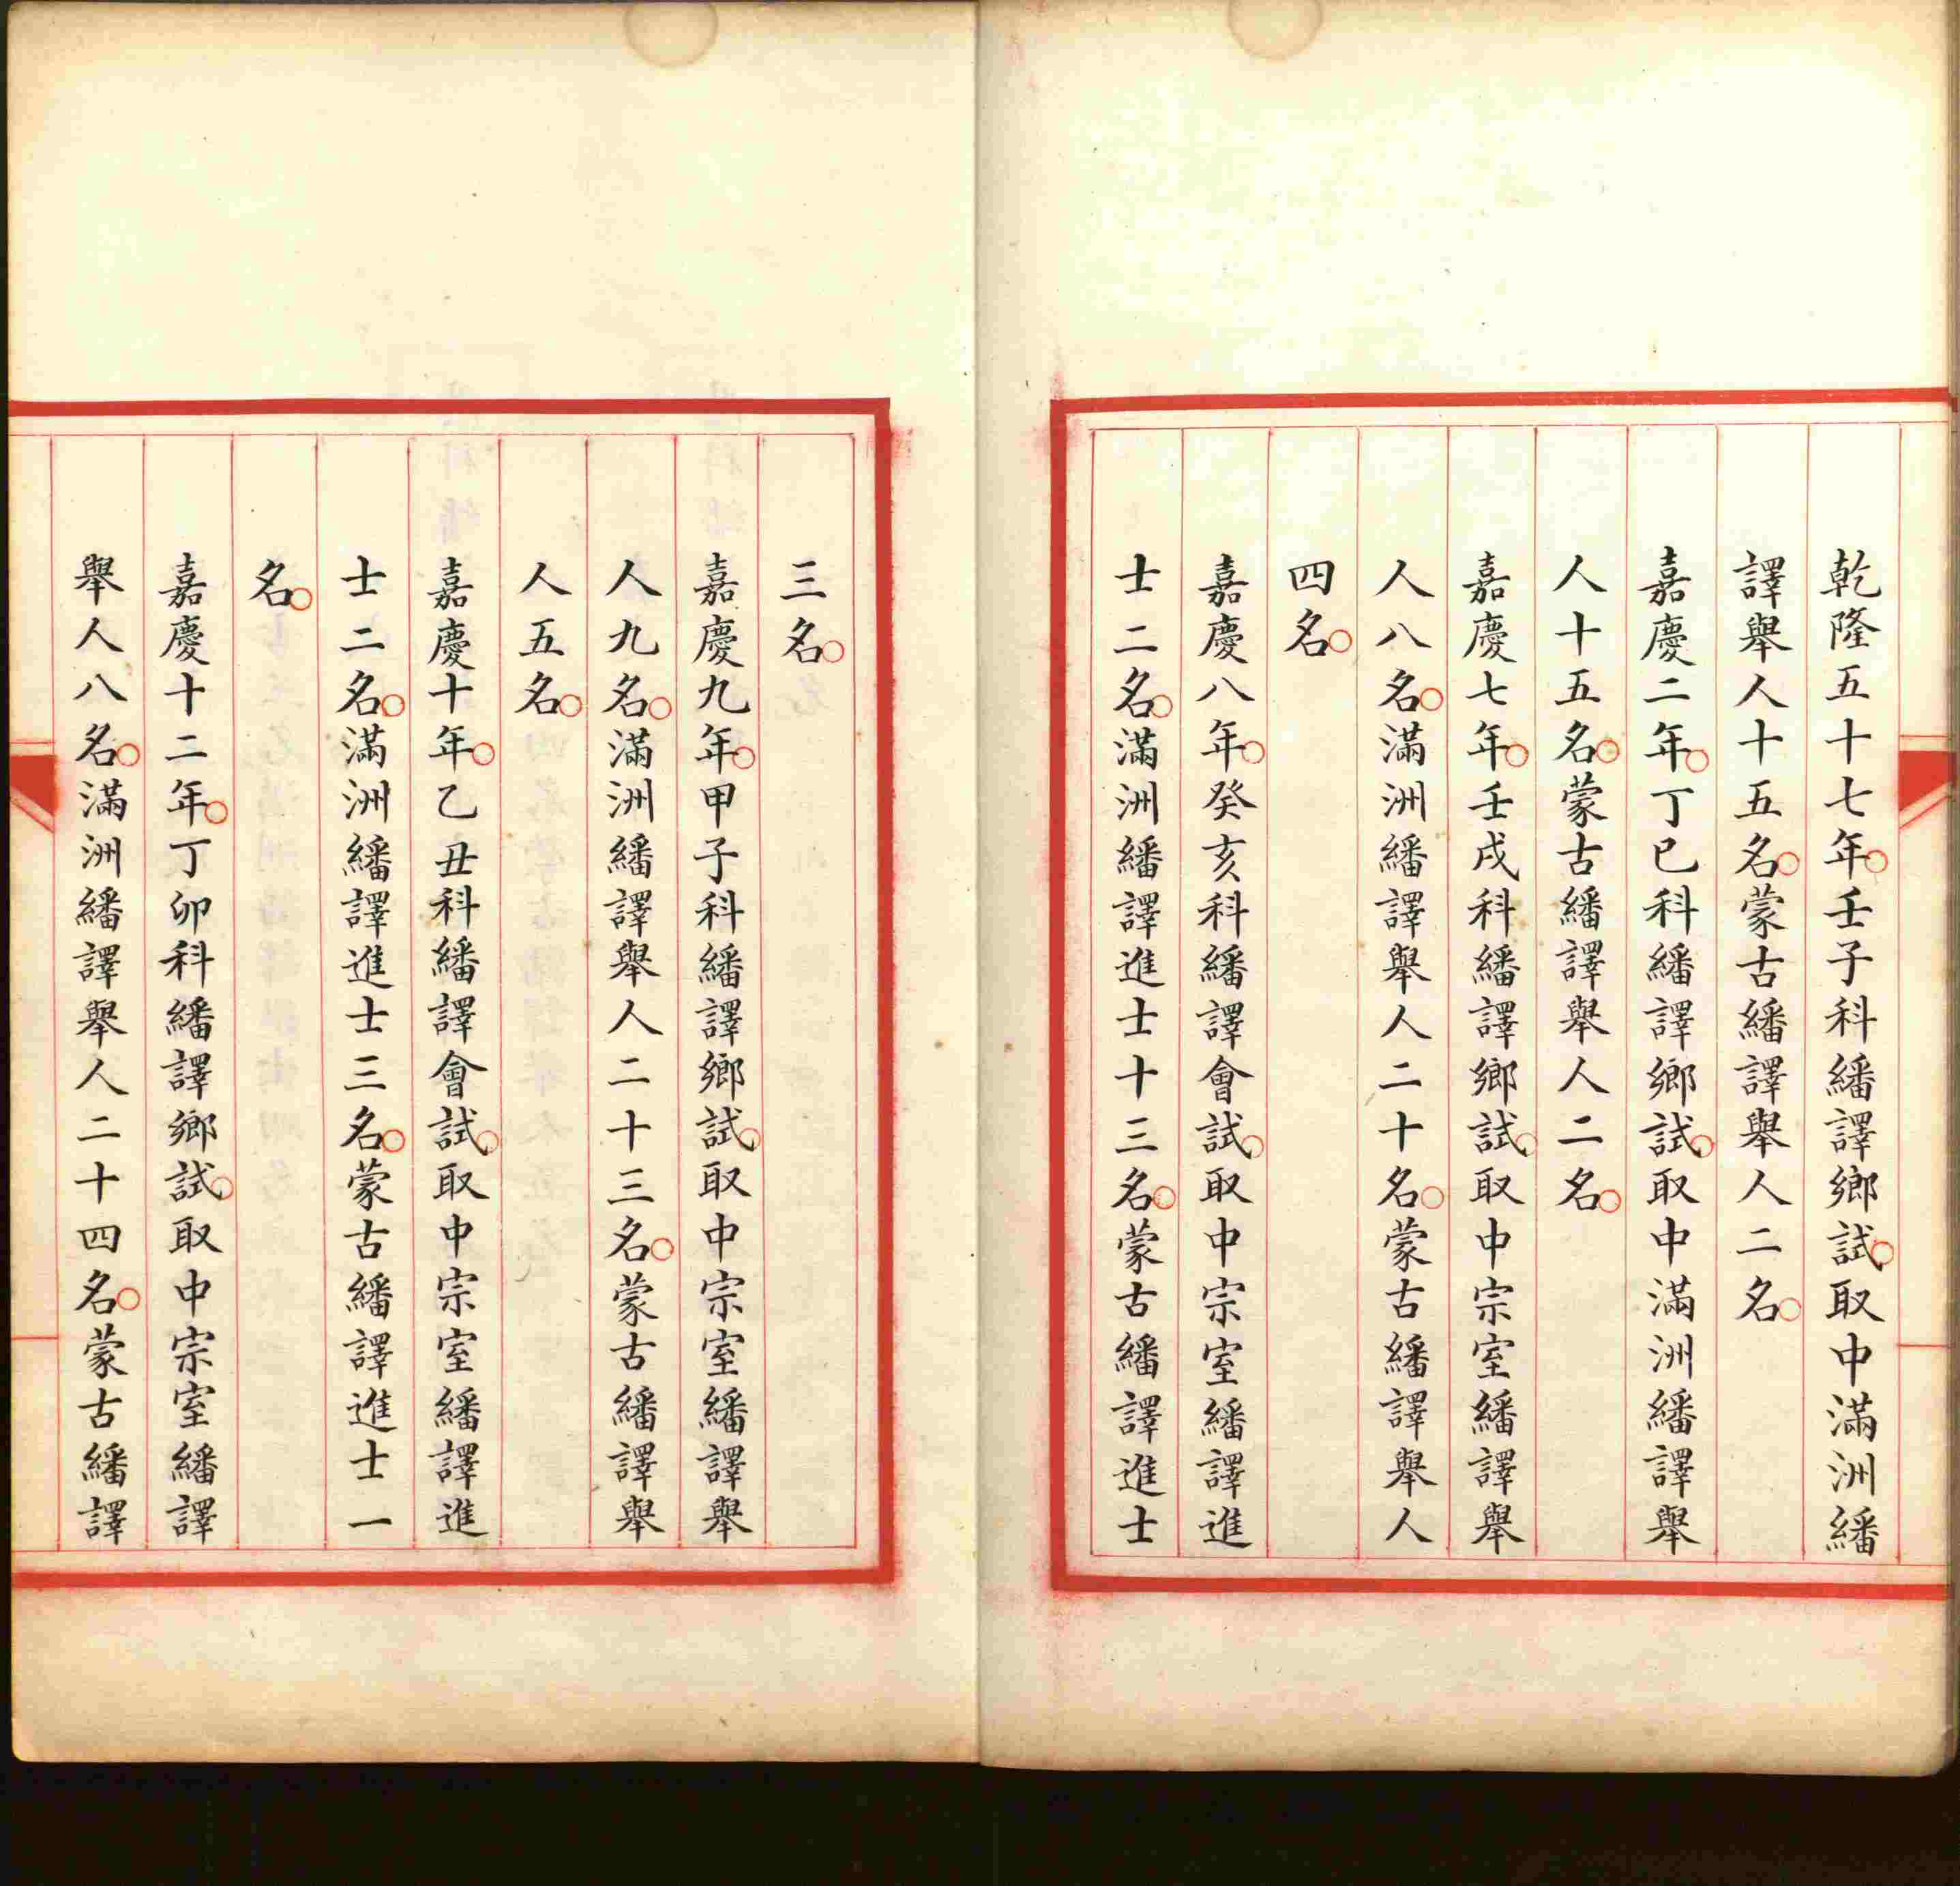 乾隆五十七年○壬子科繙譯鄉試○取中滿洲繙
譯舉人十五名○蒙古繙譯舉人二名○
嘉慶二年○丁巳科繙譯鄉試○取中滿洲繙譯舉
人十五名○蒙古繙譯舉人二名○
嘉慶七年○壬戌科繙譯鄉試○取中宗室繙譯舉
人八名○滿洲繙譯舉人二十名○蒙古繙譯舉人
四名○
嘉慶八年○癸亥科繙譯會試○取中宗室繙譯進
士二名○滿洲繙譯進士十三名○蒙古繙譯進士
三名○
嘉慶九年○甲子科繙譯鄉試○取中宗室繙譯舉
人九名○滿洲繙譯舉人二十三名○蒙古繙譯舉
人五名○
嘉慶十年○乙丑科繙譯會試○取中宗室繙譯進
士二名○滿洲繙譯進士三名○蒙古繙譯進士一
名○
嘉慶十二年○丁卯科繙譯鄉試○取中宗室繙譯
舉人八名○滿洲繙譯舉人二十四名○蒙古繙譯